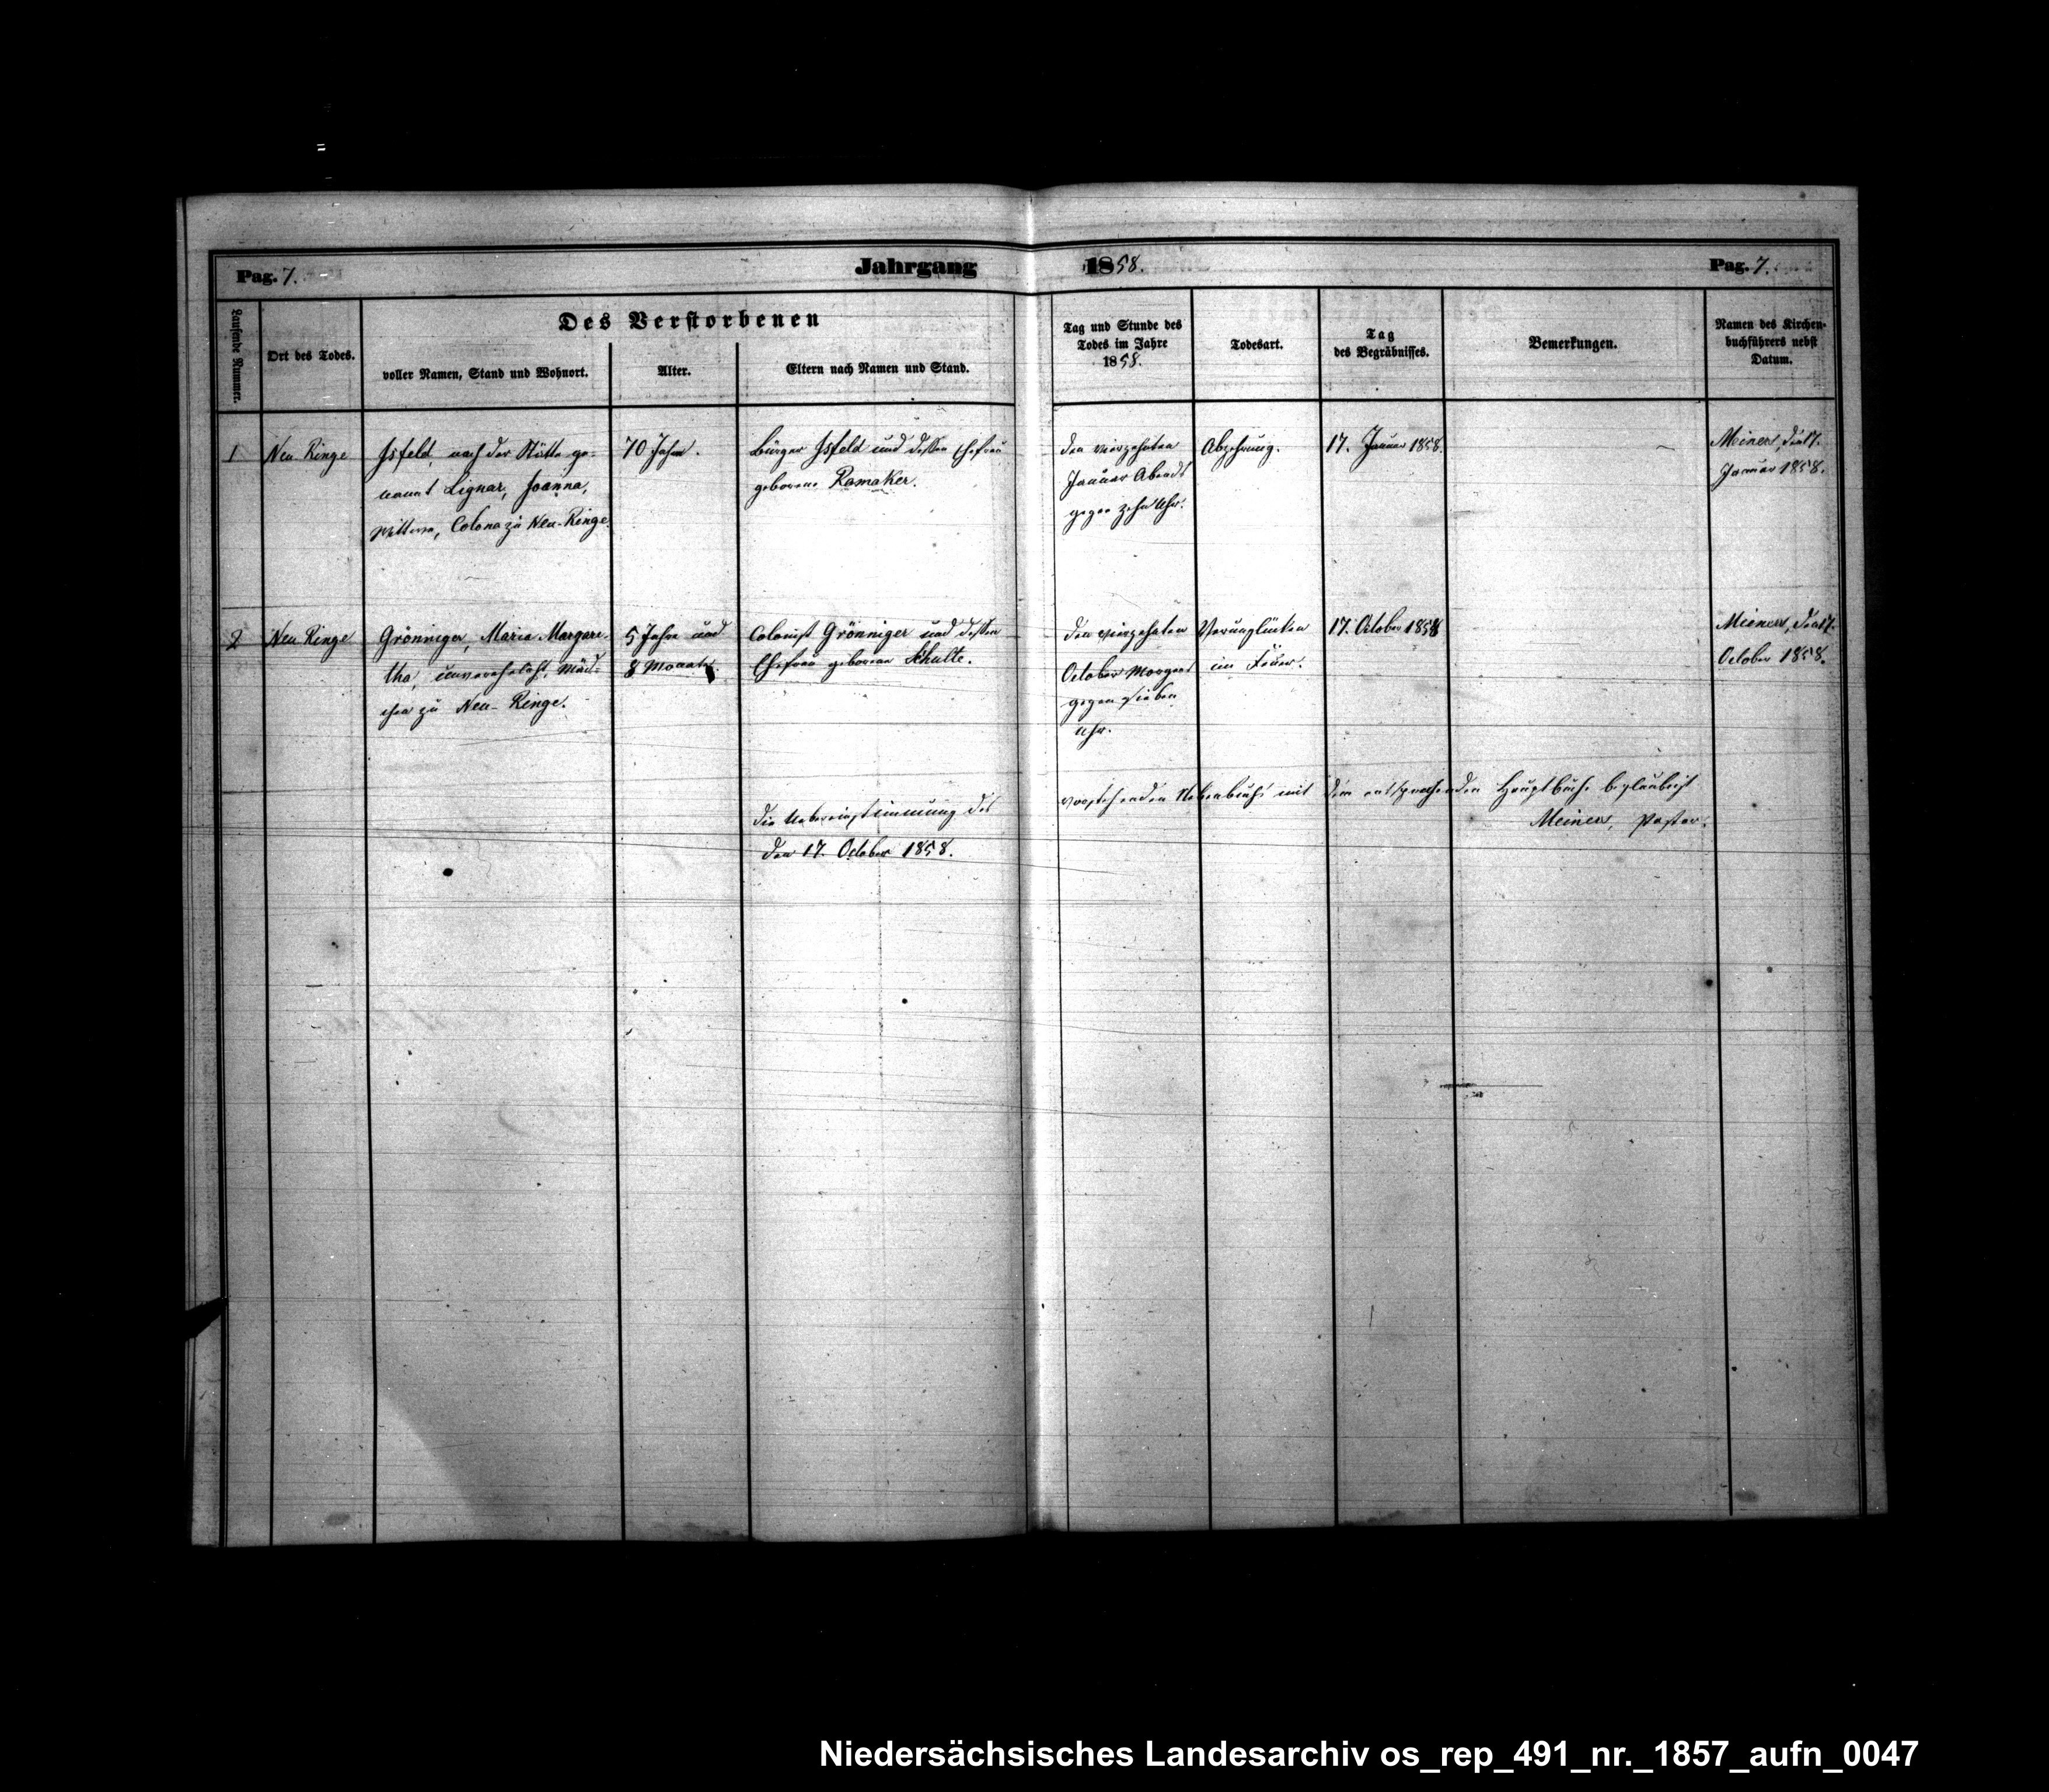 Pag. 7.
Jahrgang 1858.
Pag. 7.
Laufende Nummer.
Ort des Todes.
Des Verstorbenen
voller Namen, Stand und Wohnort.
Alter.
Eltern nach Namen und Stand.
Tag und Stunde des
Todes im Jahre
1858.
Todesart.
Tag
des Begräbnisses.
Bemerkungen.
Namen des Kirchen-
buchführers nebst
Datum.
1
Neu-Ringe
Isfeld, nach der Stätte ge-
nannt Lignar, Joanna,
Wittwe, Colona zu Neu-Ringe.
70 Jahre.
Bürger Isfeld und dessen Ehefrau
geborene Ramaker.
den vierzehnten
Januar Abends
gegen zehn Uhr.
Abzehrung.
17. Januar 1858.
Meiners, den 17.
Januar 1858.
2
Neu Ringe
Grönniger, Maria Margare-
tha, unverehelicht, Mäd-
chen zu Neu-Ringe.
5 Jahre und
8 Monate.
Colonist Grönniger und dessen
Ehefrau geborene Schulte.
den vierzehnten
October Morgens
gegen sieben
Uhr.
Verunglücken
im Feuer.
17. October 1858
Meiners, den 17.
October 1858.
Die Uebereinstimmung des vorstehenden Nebenbuchs mit dem entsprechenden Hauptbuche beglaubigt
den 17. October 1858.
Meiners, Pastor.
Niedersächsisches Landesarchiv os_rep_491_nr._1857_aufn_0047